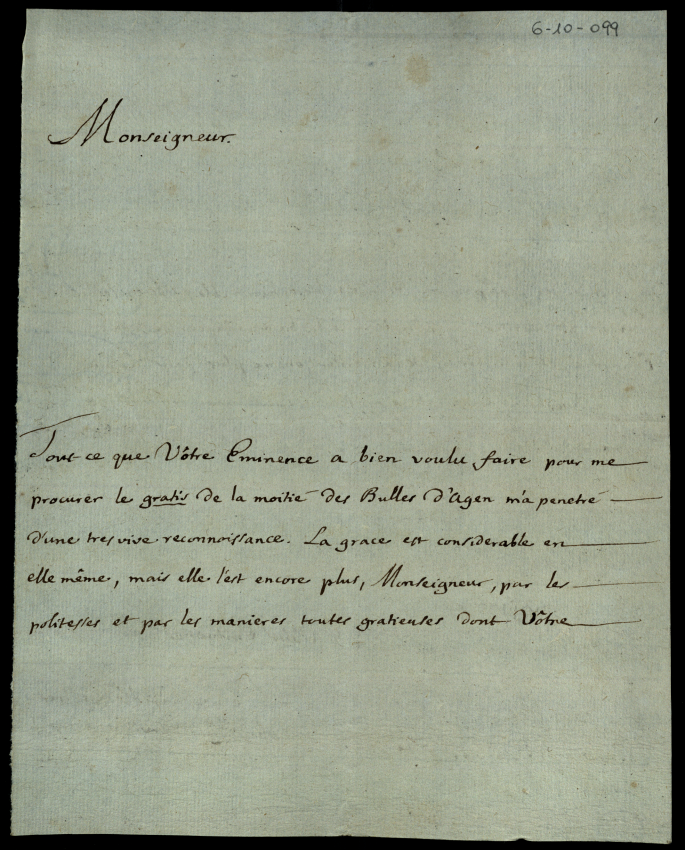 6-10-099
Monseigneur.
Tout ce que Vôtre Eminence a bien voulu faire pour me
procurer le gratis de la moitié des Bulles d'Agen m'a penetré
d'une tres vive reconnoissance. La grace est considerable en
elle même, mais elle l'est encore plus, Monseigneur, par les
politesses et par les manieres toutes gratieuses dont Vôtre